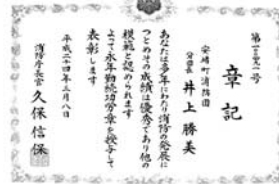 章記
安堵町消防団
分団長 井上勝美
あなたは多年にわたり消防の発展に
つとめその成績は優秀であり他の
模範と認められます
よって永年勤続功労章を授与して
表彰します
平成二十四年三月八日
消防庁長官 久保信保